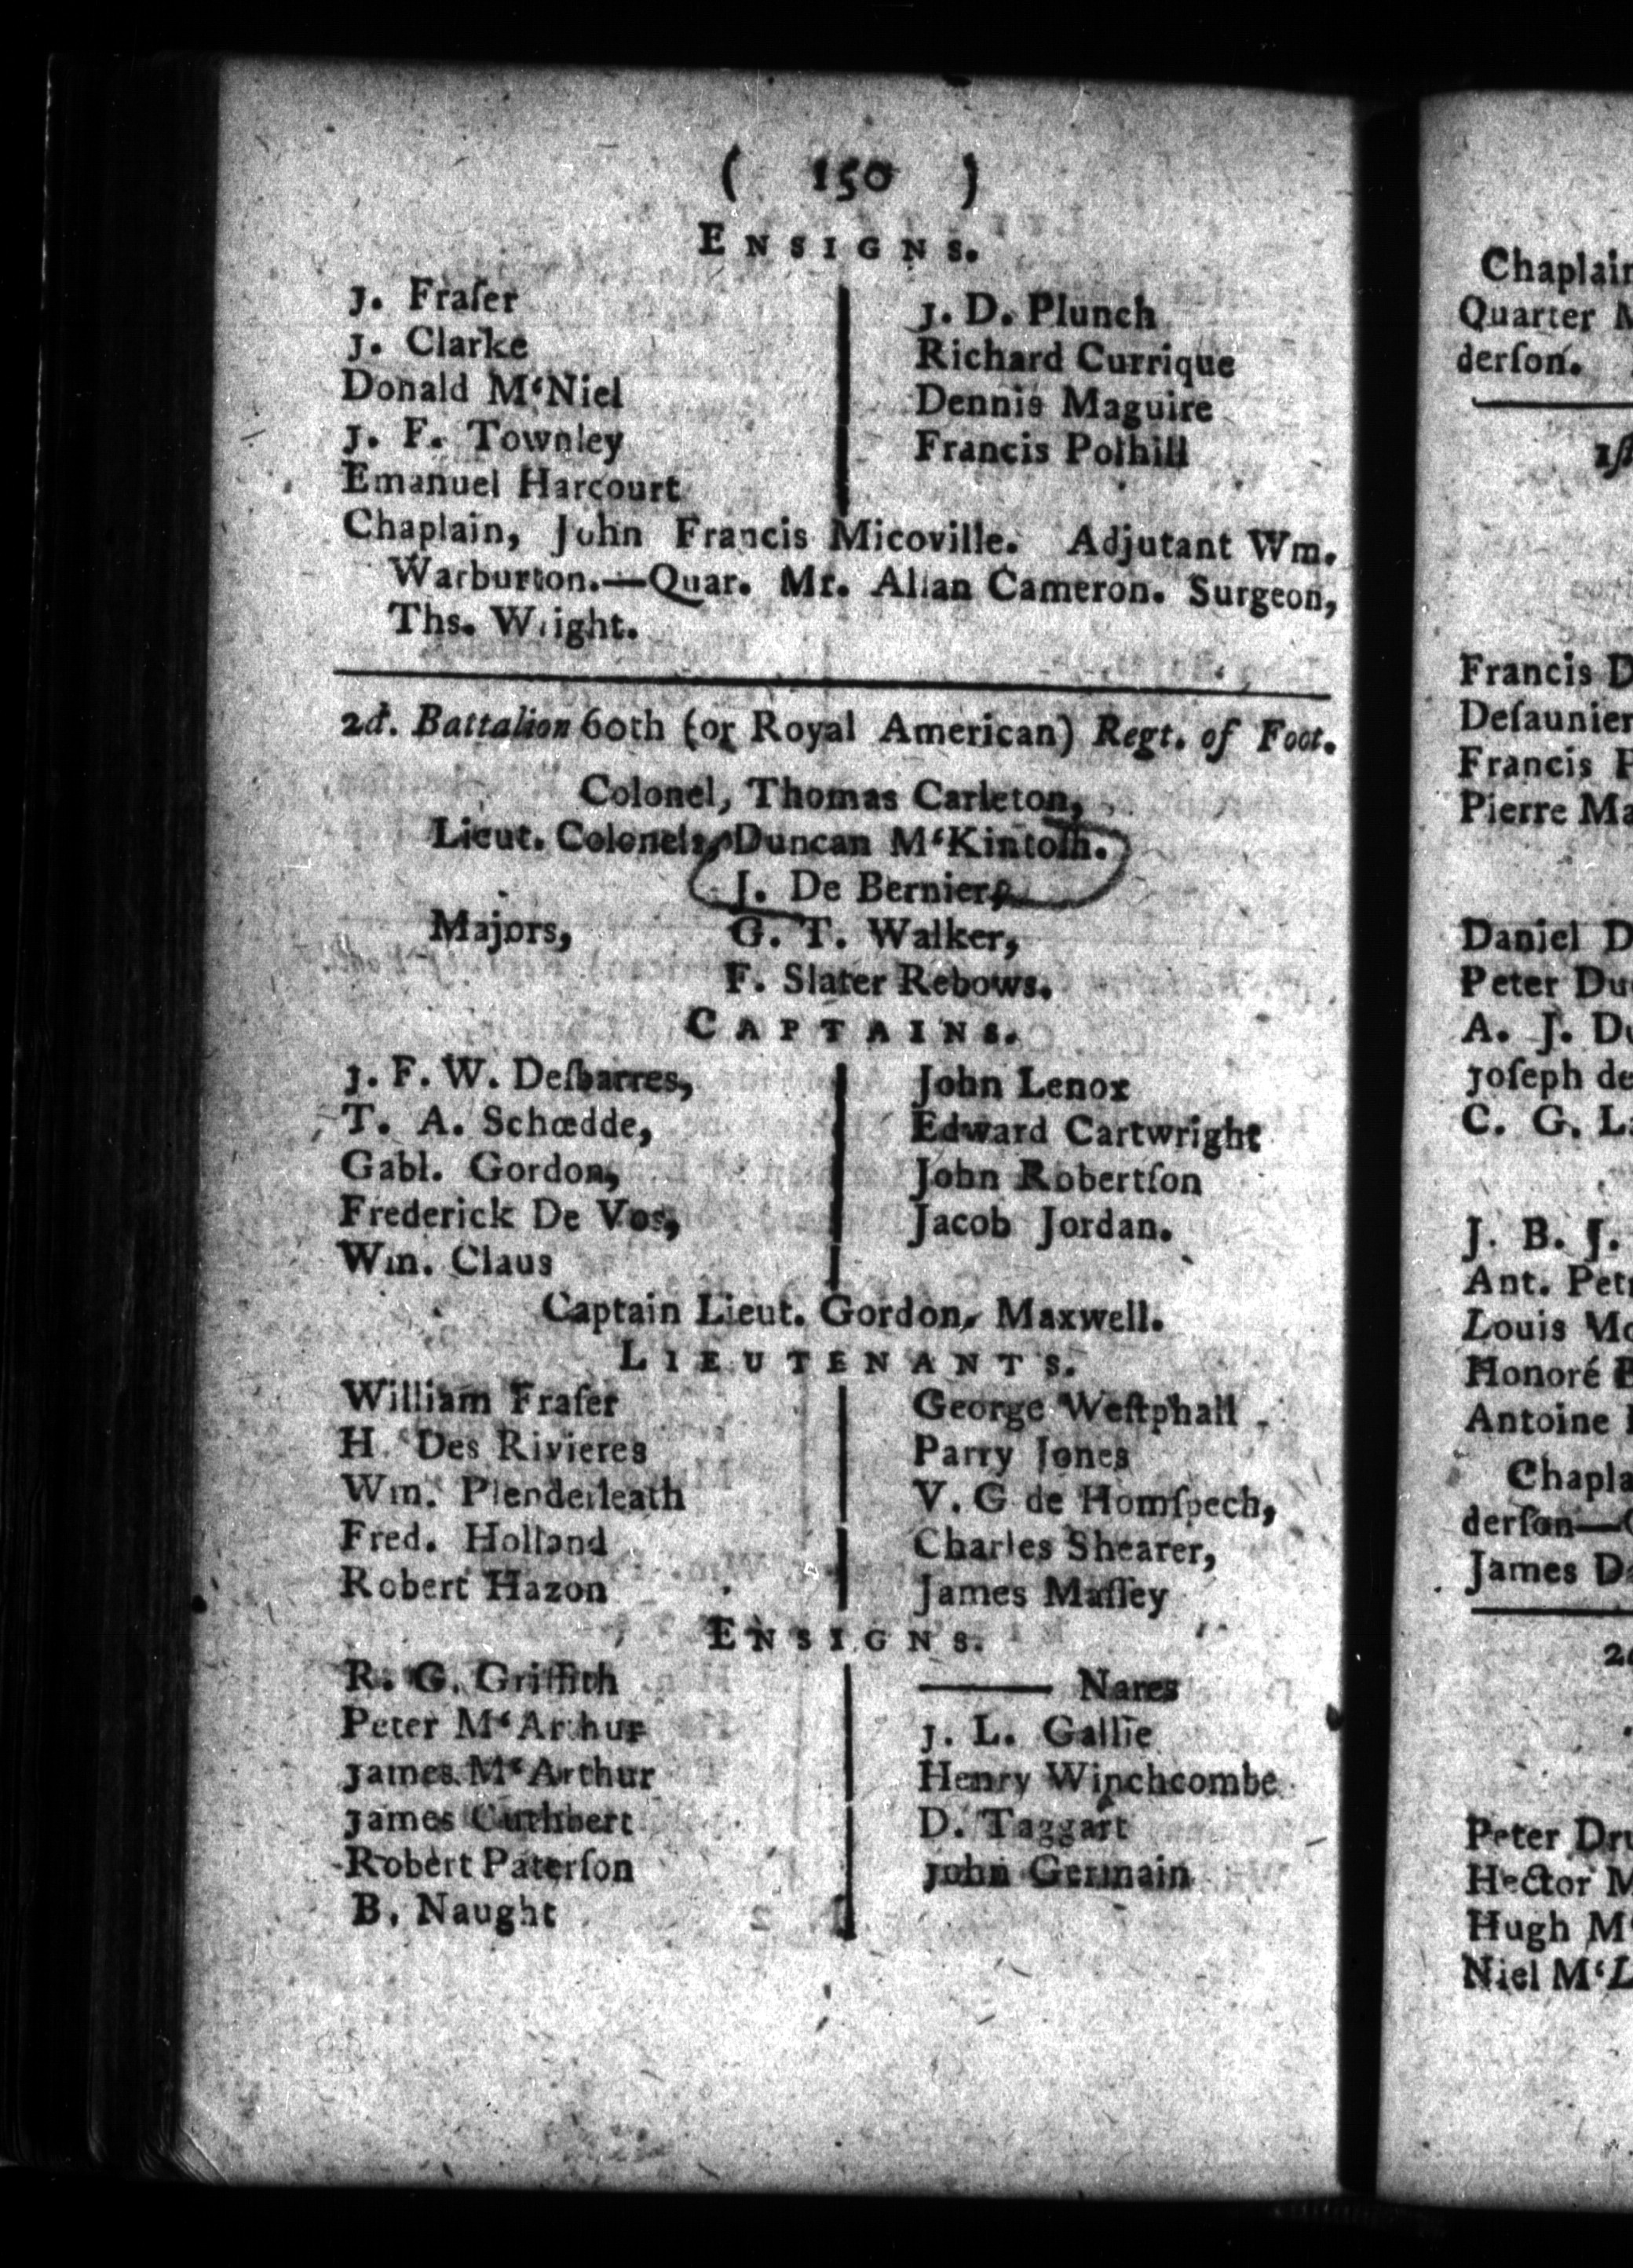 ( 150 )
ENSIGNS.
J. Fraſer
J. Clarke
Donald M‘Niel
J. F. Townley
Emanuel Harcourt
J. D. Plunch
Richard Currique
Dennis Maguire
Francis Polhill
Chaplain, John Francis Micoville. Adjutant Wm.
Warburton.—Quar. Mr. Allan Cameron. Surgeon,
Ths. Wright.
2d. Battalion 60th (or Royal American) Regt. of Foot.
Colonel, Thomas Carleton,
Lieut. Colonels, Duncan M‘Kintoſh.
J. De Bernier,
Majors, G. T. Walker,
F. Slater Rebows.
CAPTAINS.
J. F. W. Deſbarres,
T. A. Schœdde,
Gabl. Gordon,
Frederick De Vos,
Wm. Claus
John Lenox
Edward Cartwright
John Robertſon
Jacob Jordan.
Captain Lieut. Gordon, Maxwell.
LIEUTENANTS.
William Fraſer
H. Des Rivieres
Wm. Plenderleath
Fred. Holland
Robert Hazon
George Weſtphall
Parry Jones
V. G de Homſpech,
Charles Shearer,
James Maſſey
ENSIGNS.
R. G. Griffith
Peter M‘Arthur
James M‘Arthur
James Cuthbert
Robert Paterſon
B. Naught
—— Nares
J. L. Gallie
Henry Winchcombe
D. Taggart
John Germain
Chaplain
Quarter M
derſon.
1ſt
Francis D
Deſaunier
Francis P
Pierre Ma
Daniel D
Peter Du
A. J. Du
Joſeph de
C. G. La
J. B. J.
Ant. Petr
Louis Mo
Honoré B
Antoine
Chapla
derſon—
James Da
2
Peter Dru
Hector M
Hugh M‘
Niel M‘L